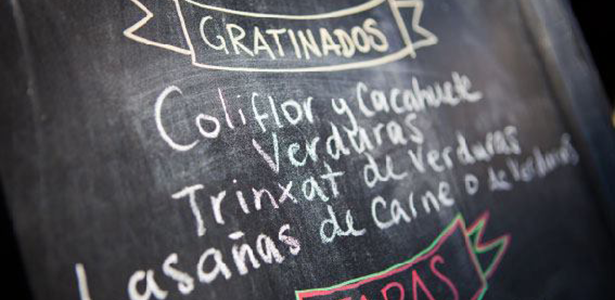 GRATINADOS
Coliflor y Cacahuete
Verduras
Trinxat de verduras
Lasañas de Carne o de Verduras
TAPAS